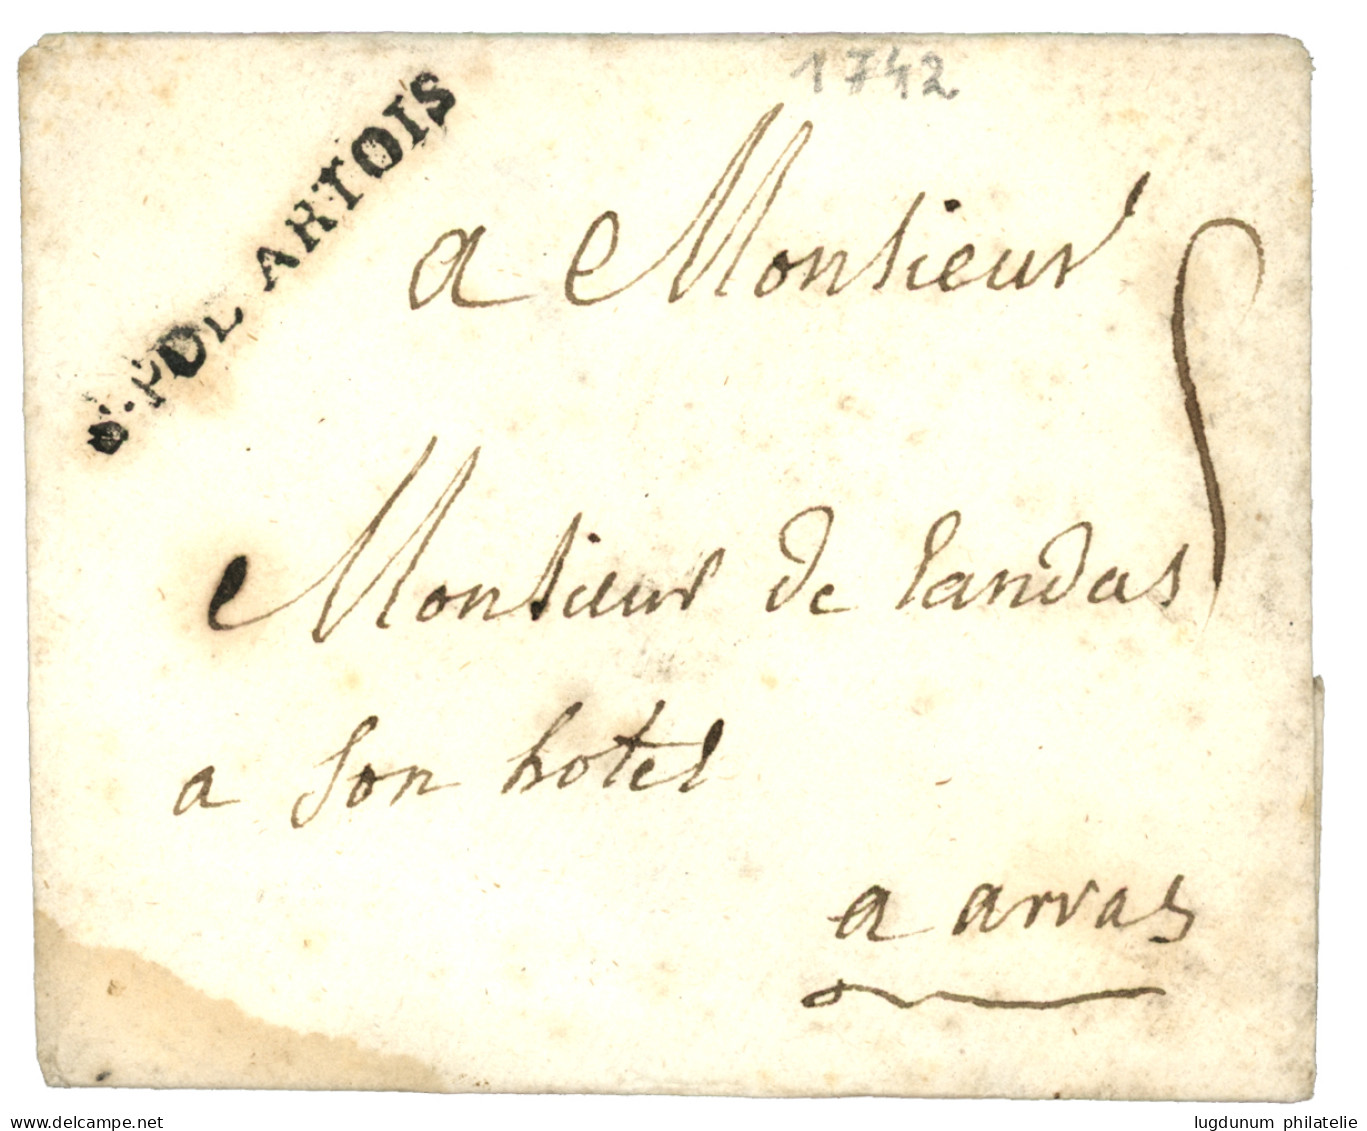 1742
St. POL ARTOIS
a Monsieur
Monsieur de Landas
a son hotel
a arras
www.delcampe.net
lugdunum philatelie